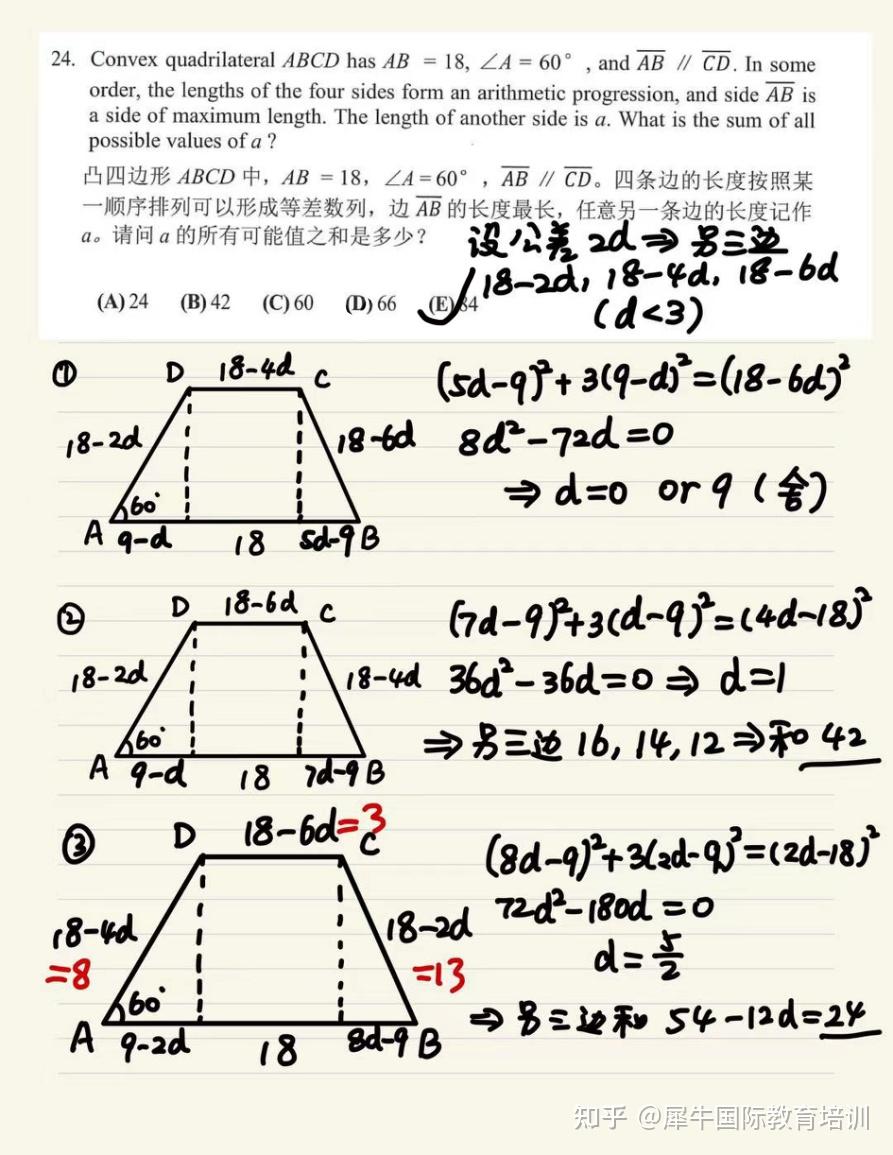 24. Convex quadrilateral ABCD has AB = 18, ∠A = 60° , and AB // CD. In some
order, the lengths of the four sides form an arithmetic progression, and side AB is
a side of maximum length. The length of another side is a. What is the sum of all
possible values of a ?
凸四边形 ABCD 中，AB = 18，∠A = 60° ，AB // CD。四条边的长度按照某
一顺序排列可以形成等差数列，边 AB 的长度最长，任意另一条边的长度记作
a。请问 a 的所有可能值之和是多少？
设公差 2d ⇒ 另三边
18-2d, 18-4d, 18-6d
(d<3)
(A) 24 (B) 42 (C) 60 (D) 66 (E) 84
① D 18-4d C
18-2d 18-6d
60°
A 9-d 18 5d-9 B
(5d-9)²+3(9-d)²=(18-6d)²
8d²-72d=0
⇒ d=0 or 9 (舍)
② D 18-6d C
18-2d 18-4d
60°
A 9-d 18 7d-9 B
(7d-9)²+3(d-9)²=(4d-18)²
36d²-36d=0 ⇒ d=1
⇒ 另三边 16, 14, 12 ⇒ 和 42
③ D 18-6d=3 C
18-4d 18-2d
=8 =13
60°
A 9-2d 18 8d-9 B
(8d-9)²+3(2d-9)²=(2d-18)²
72d²-180d=0
d=5/2
⇒ 另三边和 54-12d=24
知乎 @犀牛国际教育培训